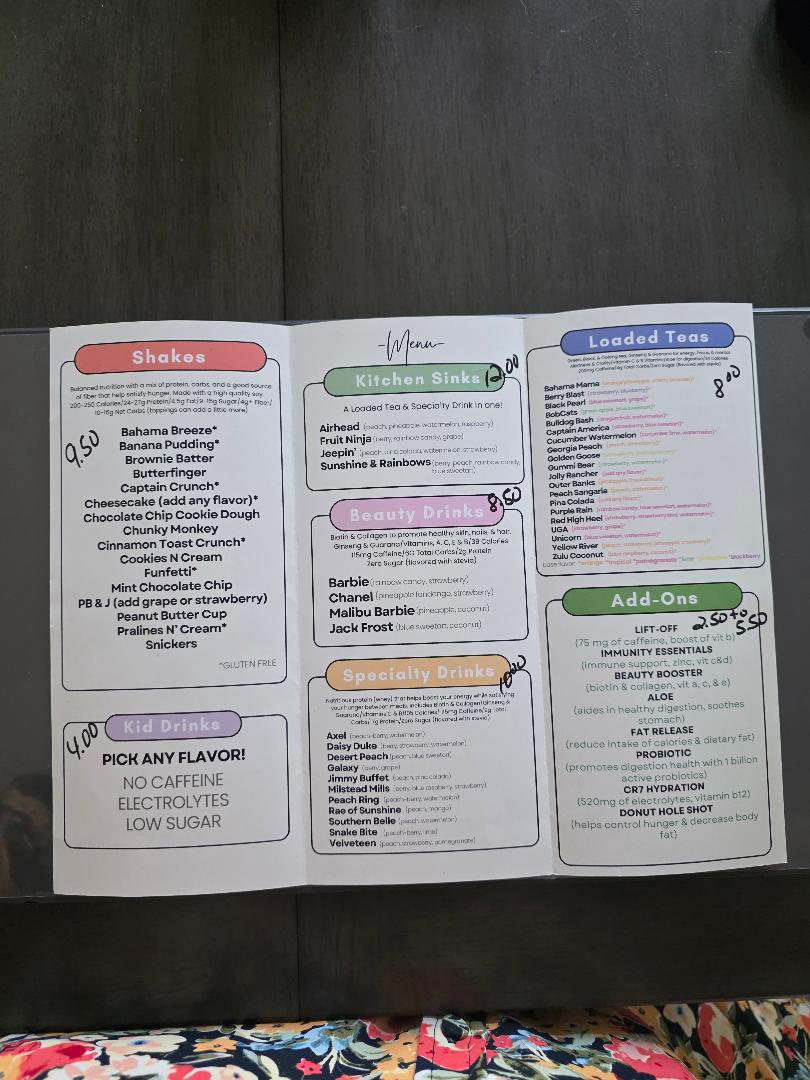 Shakes
Balanced nutrition with a mix of protein, carbs, and a good source
of fiber that help satisfy hunger. Made with a high quality soy.
200-250 Calories/24-27g Protein/
10-16g Net Carbs (toppings can add a little more)
9.50
Bahama Breeze*
Banana Pudding*
Brownie Batter
Butterfinger
Captain Crunch*
Cheesecake (add any flavor)*
Chocolate Chip Cookie Dough
Chunky Monkey
Cinnamon Toast Crunch*
Cookies N Cream
Funfetti*
Mint Chocolate Chip
PB & J (add grape or strawberry)
Peanut Butter Cup
Pralines N' Cream*
Snickers
*GLUTEN FREE
Kid Drinks
4.00
PICK ANY FLAVOR!
NO CAFFEINE
ELECTROLYTES
LOW SUGAR
-Menu-
Kitchen Sinks 12.00
A Loaded Tea & Specialty Drink in one!
Airhead (peach, pineapple, watermelon, raspberry)
Fruit Ninja (berry, rainbow candy, grape)
Jeepin' (peach, pina colada, watermelon, strawberry)
Sunshine & Rainbows (berry, peach, rainbow candy,
blue sweetart)
Beauty Drinks 8.50
Biotin & Collagen to promote healthy skin, nails, & hair.
Ginseng & Guarana/Vitamins, A, C, E & B/39 Calories
115mg Caffeine/5G Total Carbs/2g Protein
Zero Sugar (flavored with stevia)
Barbie (rainbow candy, strawberry)
Chanel (pineapple fandango, strawberry)
Malibu Barbie (pineapple, coconut)
Jack Frost (blue sweetart, coconut)
Specialty Drinks 10.00
Nutritious protein (whey) that helps boost your energy while satisfying
your hunger between meals. Includes Biotin & Collagen/Ginseng &
Guarana/Vitamins C & B/105 Calories/ 115mg Caffeine/
Protein/Zero Sugar (flavored with stevia)
Axel (peach-berry, watermelon)
Daisy Duke (berry, strawberry, watermelon)
Desert Peach (peach, blue sweetart)
Galaxy (berry, grape)
Jimmy Buffet (peach, pina colada)
Milstead Mills (berry, blue raspberry, strawberry)
Peach Ring (peach-berry, watermelon)
Rae of Sunshine (peach, mango)
Southern Belle (peach, watermelon)
Snake Bite (peach-berry, lime)
Velveteen (peach, strawberry, pomegranate)
Loaded Teas
Green, Black, & Oolong tea, Ginseng & Guarana for energy, Focus, & mental
Alertness & Clarity/Vitamin C & B Vitamins/Aloe for digestion/24 Calories
200mg Caffeine/6g Total Carbs/Zero Sugar (flavored with stevia)
8.00
Bahama Mama (orange pineapple, cherry limeade)*
Berry Blast (strawberry, blueberry)*
Black Pearl (blue sweetart, grape)*
BobCats (green apple, blue sweetart)*
Bulldog Bash (dragonfruit, watermelon)*
Captain America (strawberry, blue sweetart)*
Cucumber Watermelon (cucumber lime, watermelon)*
Georgia Peach (peach, strawberry)*
Golden Goose
Gummi Bear
Jolly Rancher (add any flavor)*
Outer Banks
Peach Sangaria (peach, watermelon)*
Pina Colada (add any flavor)*
Purple Rain (rainbow candy, blue sweetart, watermelon)*
Red High Heel
UGA (strawberry, grape)*
Unicorn (blue sweetart, watermelon)*
Yellow River (peach, strawberry, pineapple, coconut)*
Zulu Coconut (blue raspberry, coconut)*
base flavor: *orange *tropical *pomegranate *lime *blackberry
Add-Ons
2.50 to
5.50
LIFT-OFF
(75 mg of caffeine, boost of vit b)
IMMUNITY ESSENTIALS
(immune support, zinc, vit c&d)
BEAUTY BOOSTER
(biotin & collagen, vit a, c, & e)
ALOE
(aides in healthy digestion, soothes
stomach)
FAT RELEASE
(reduce intake of calories & dietary fat)
PROBIOTIC
(promotes digestion health with 1 billion
active probiotics)
CR7 HYDRATION
(520mg of electrolytes, vitamin b12)
DONUT HOLE SHOT
(helps control hunger & decrease body
fat)